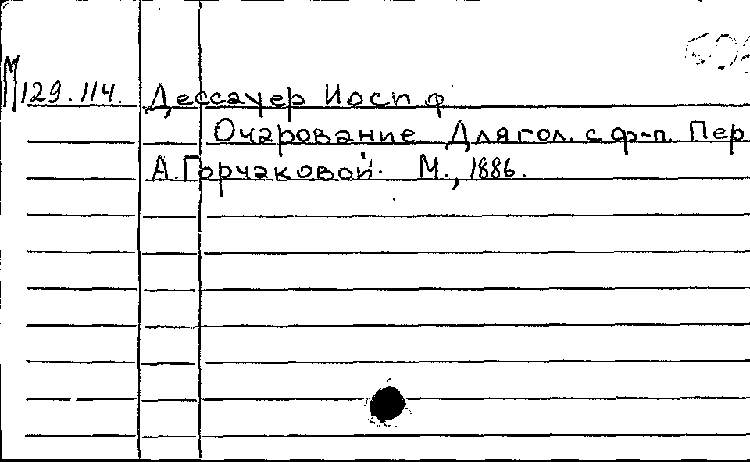 М 129.114. Дессауер Иосиф
Очарование Для гол. с ф-п. Пер
А. Горчаковой. М., 1886.